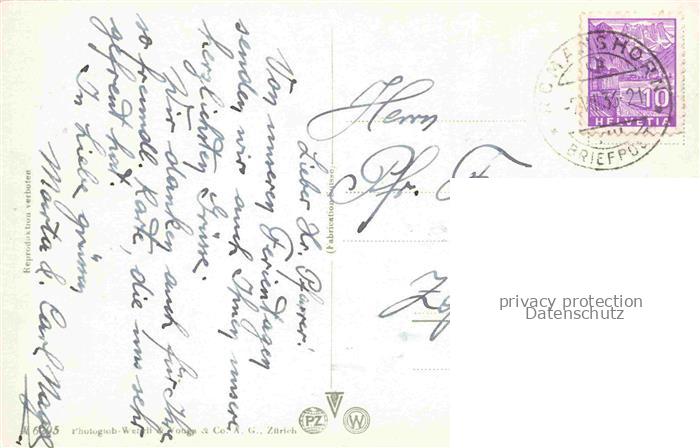 Lieber Hr. Pfarrer!
Von unseren Ferientagen
senden wir auch Ihnen unsere
herzlichsten Grüsse.
Wir danken auch für Ihre
so freundl. Karte, die uns sehr
gefreut hat.
In Liebe grüssen
Marta & Carl
Herrn
Pfr.
ROMANSHORN
35-21
BRIEFPOST
10
HELVETIA
privacy protection
Datenschutz
(Fabrication Suisse)
Reproduktion verboten
Photoglob-Wehrli & Vouga & Co. A. G., Zürich
PZ
W